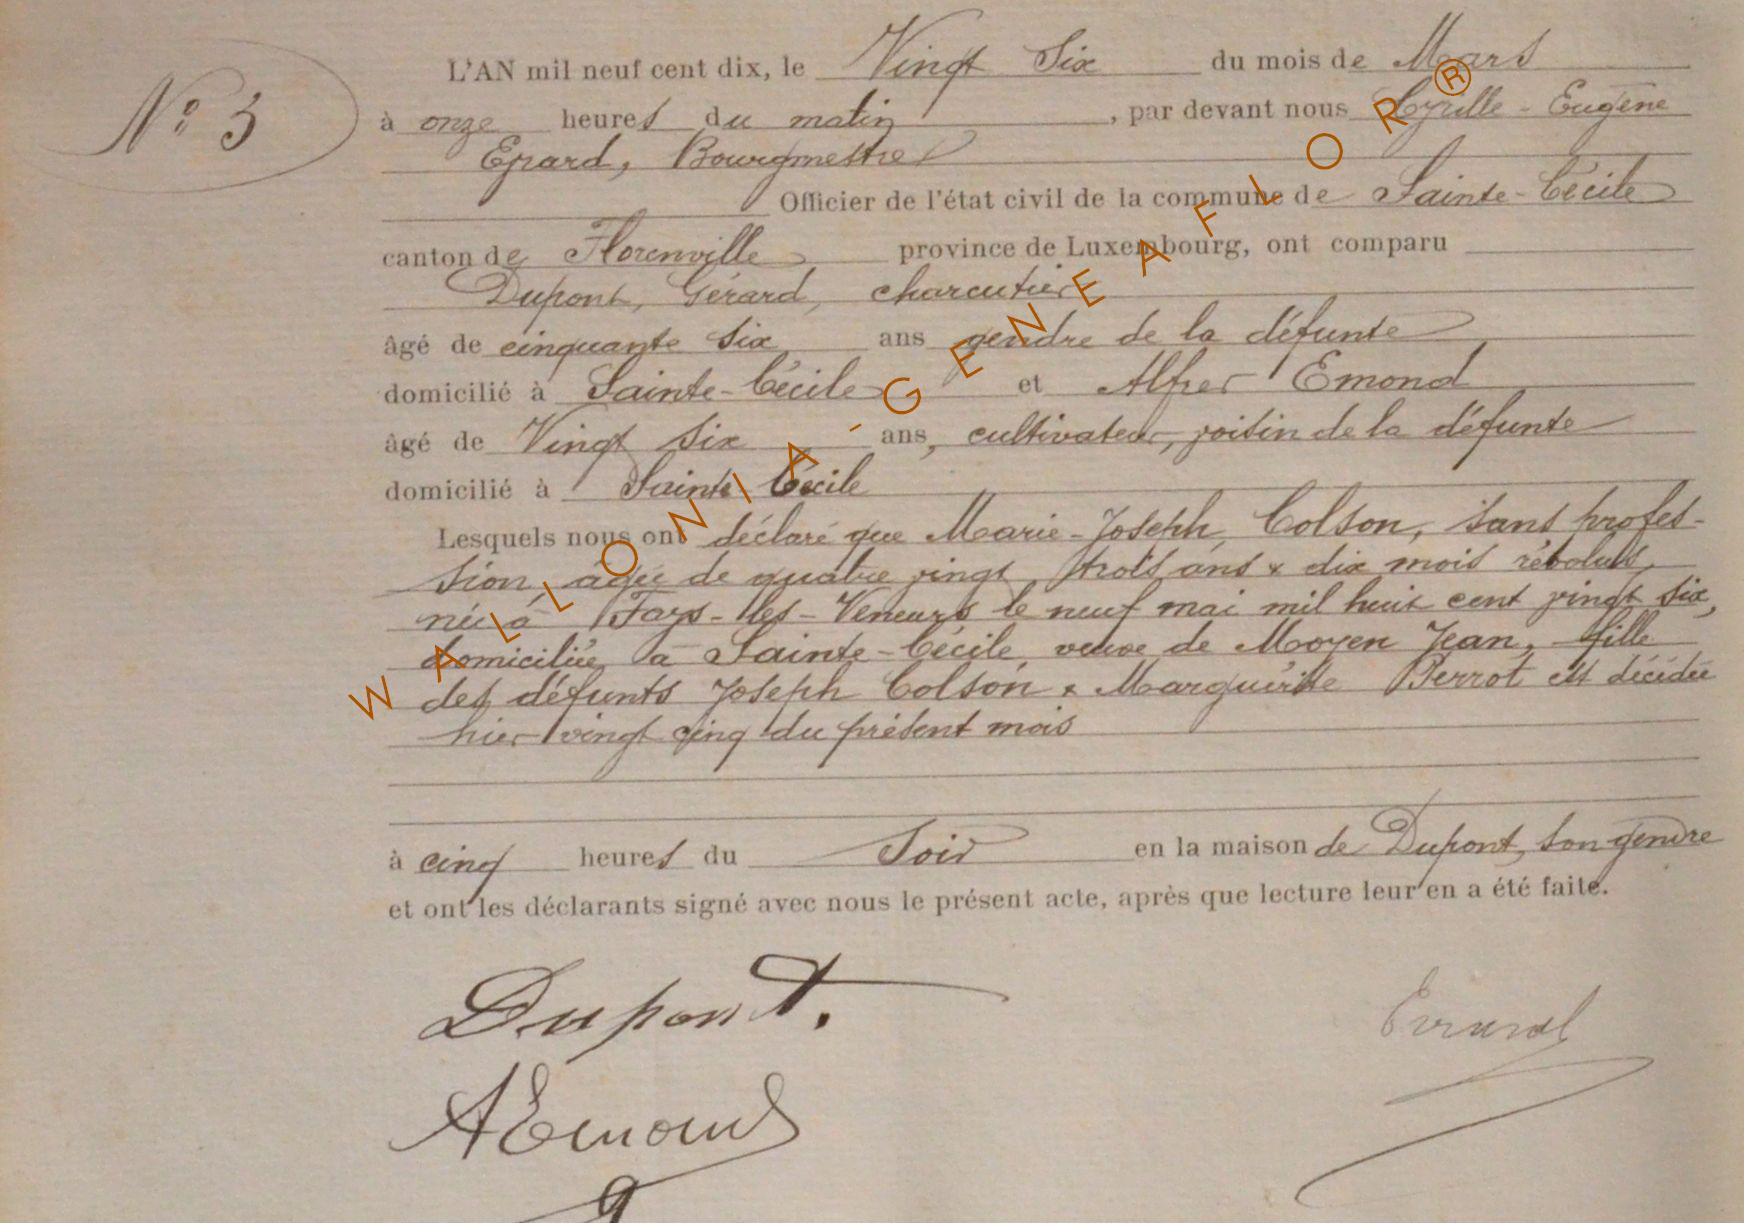 N° 3
L'AN mil neuf cent dix, le Vingt Six du mois de Mars
à onze heures du matin, par devant nous Cyrille-Eugène
Evrard, Bourgmestre
Officier de l'état civil de la commune de Sainte-Cécile
canton de Florenville province de Luxembourg, ont comparu
Dupont, Gérard, charcutier
âgé de cinquante six ans gendre de la défunte
domicilié à Sainte-Cécile et Alfred Emond
âgé de Vingt six ans, cultivateur, voisin de la défunte
domicilié à Sainte Cécile
Lesquels nous ont déclaré que Marie-Joseph Colson, sans profes-
sion, agée de quatre vingt trois ans & dix mois révolus,
née à Fays-les-Veneurs le neuf mai mil huit cent vingt six,
domiciliée à Sainte-Cécile, veuve de Moyen Jean, fille
des défunts Joseph Colson & Marguerite Perrot est décédée
hier vingt cinq du présent mois
à cinq heures du Soir en la maison de Dupont, son gendre
et ont les déclarants signé avec nous le présent acte, après que lecture leur en a été faite.
Dupont.
Evrard
AEmond
WALLONIA-GENEAFLOR®